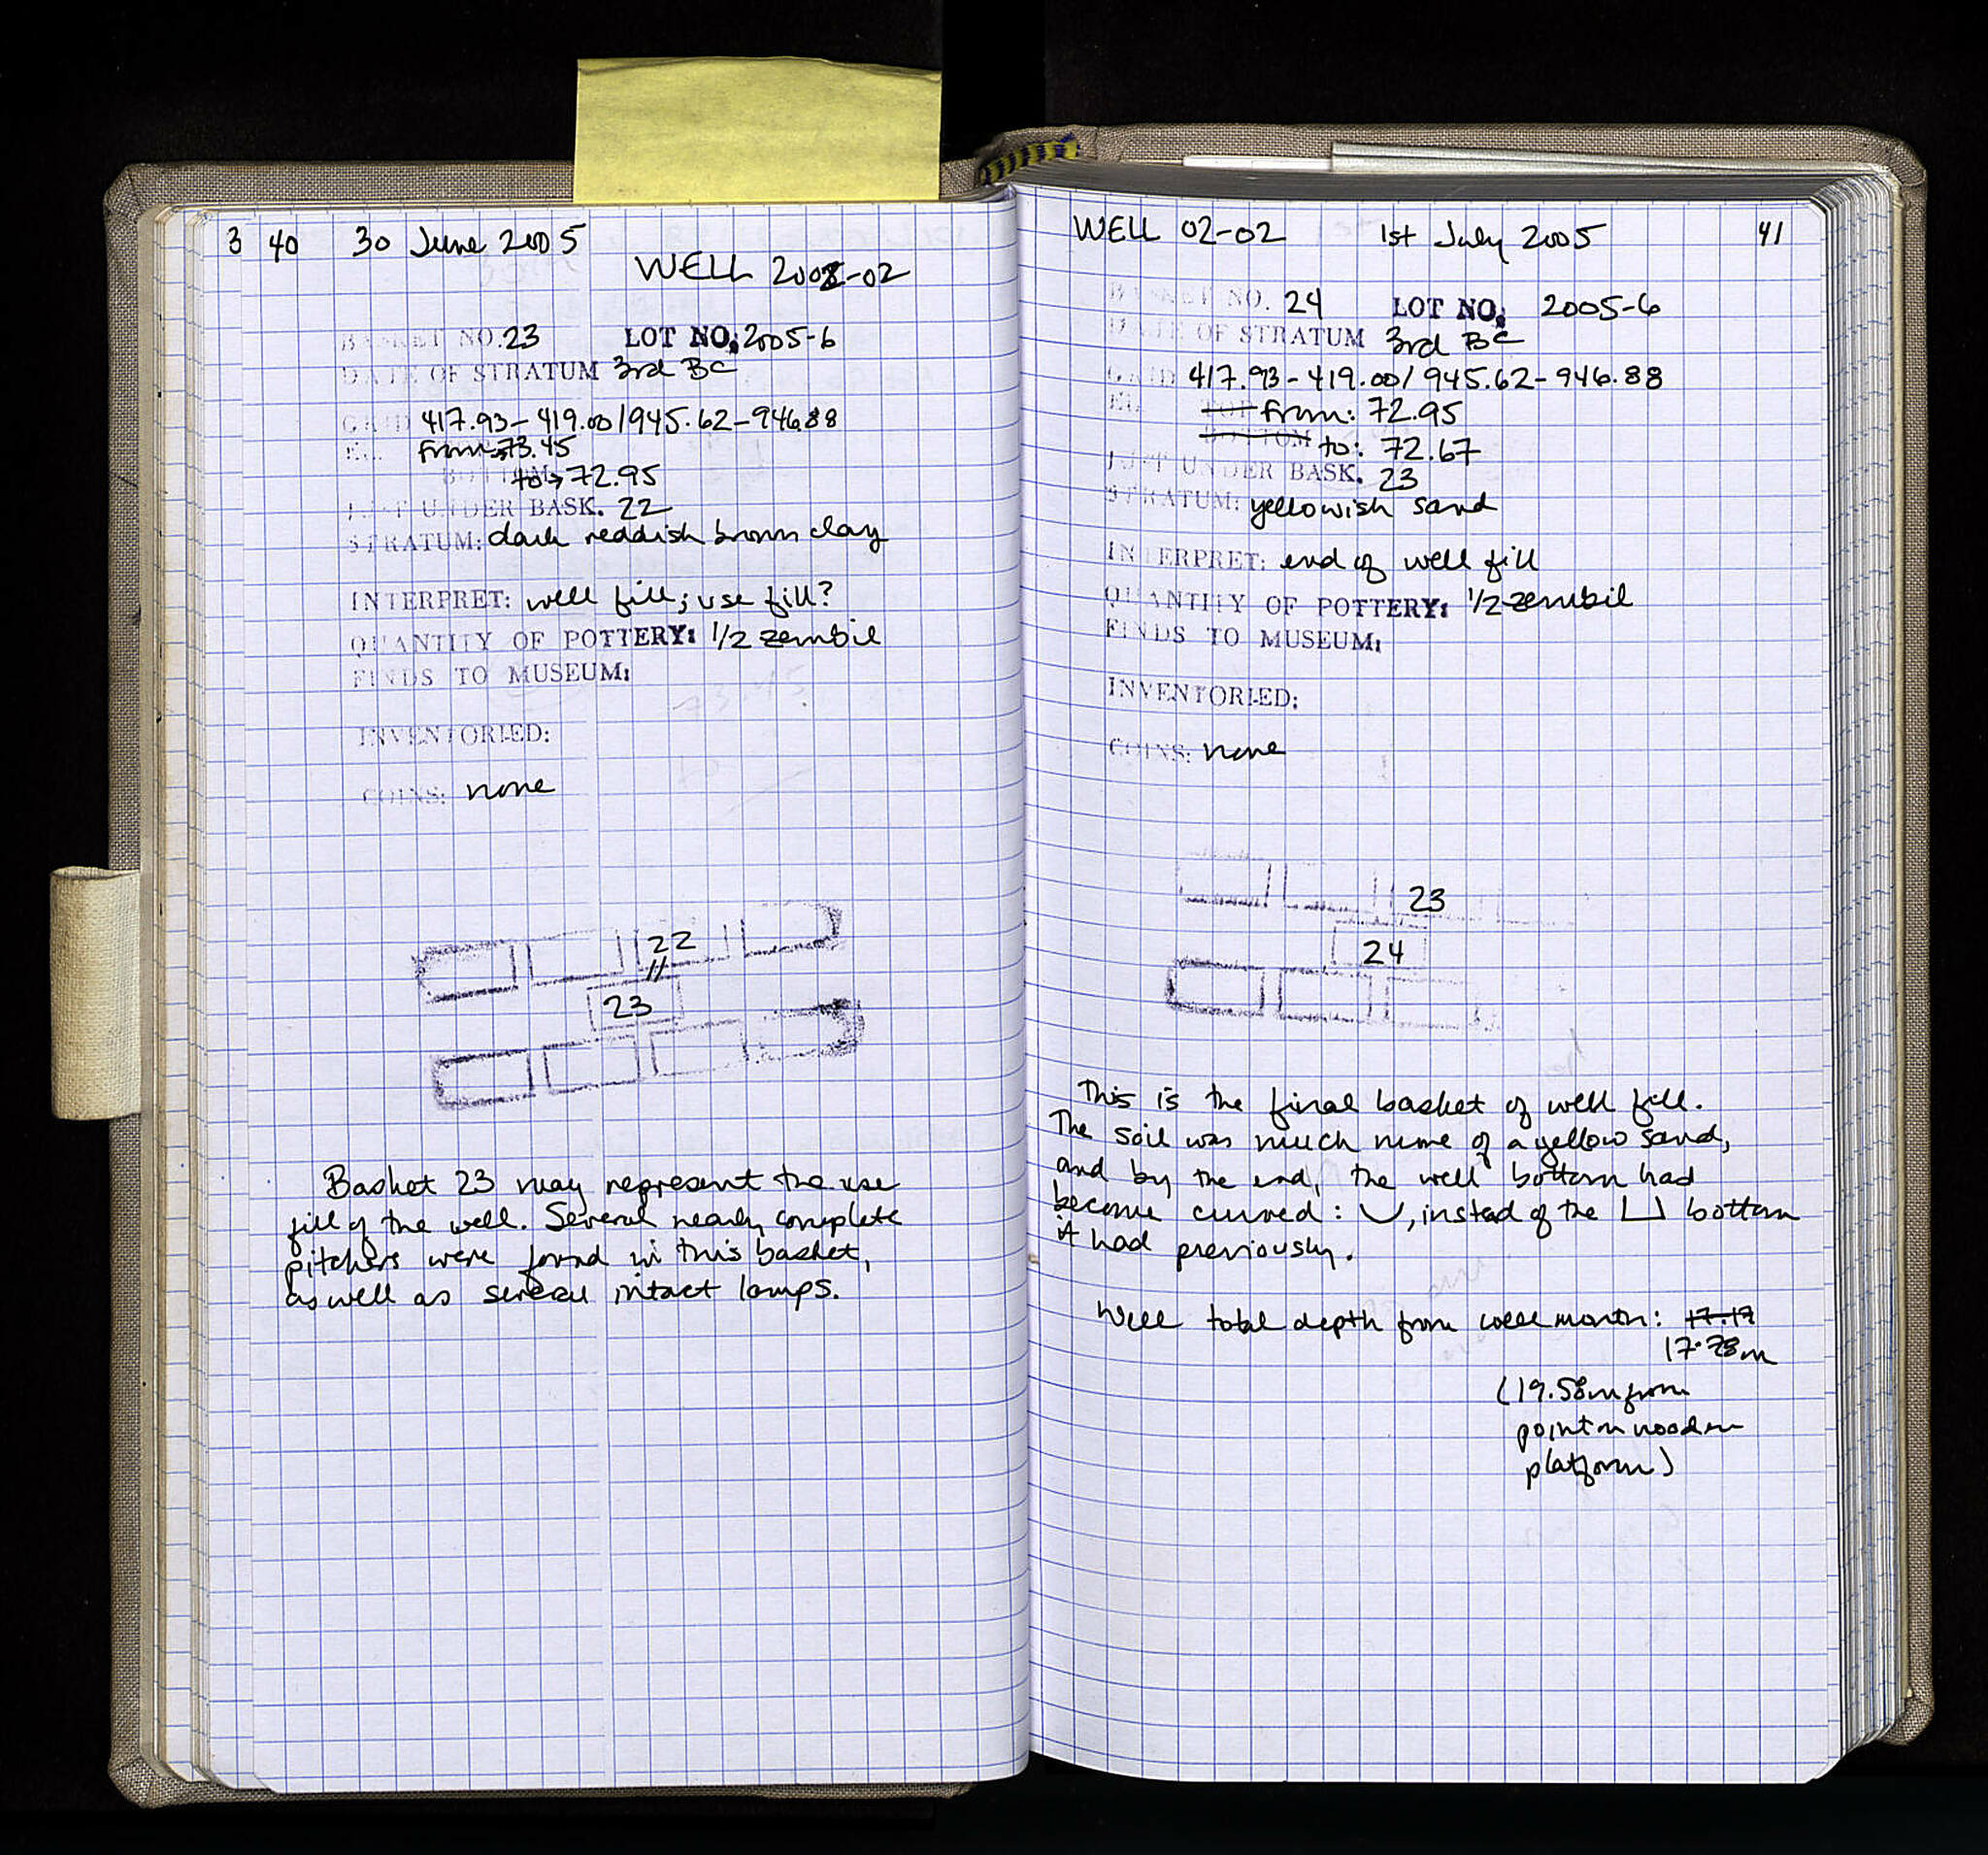 3 40 30 June 2005
WELL 2002-02
BASKET NO. 23 LOT NO: 2005-6
DATE OF STRATUM 3rd BC
GRID 417.93-419.00/945.62-946.88
EL. from → 73.45
BOTTOM to → 72.95
JUST UNDER BASK. 22
STRATUM: dark reddish brown clay
INTERPRET: well fill; use fill?
QUANTITY OF POTTERY: 1/2 zembil
FINDS TO MUSEUM:
INVENTORIED:
COINS: none
22
//
23
Basket 23 may represent the use
fill of the well. Several nearly complete
pitchers were found in this basket,
as well as several intact lamps.
WELL 02-02 1st July 2005 41
BASKET NO. 24 LOT NO: 2005-6
DATE OF STRATUM 3rd BC
GRID 417.93-419.00/945.62-946.88
EL. TOP from: 72.95
BOTTOM to: 72.67
JUST UNDER BASK. 23
STRATUM: yellowish sand
INTERPRET: end of well fill
QUANTITY OF POTTERY: 1/2 zembil
FINDS TO MUSEUM:
INVENTORIED:
COINS: none
23
24
This is the final basket of well fill.
The soil was much more of a yellow sand,
and by the end, the well bottom had
become curved: , instead of the bottom
it had previously.
Well total depth from well mouth: 17.17
17.28m
(19.58m from
point on wooden
platform)